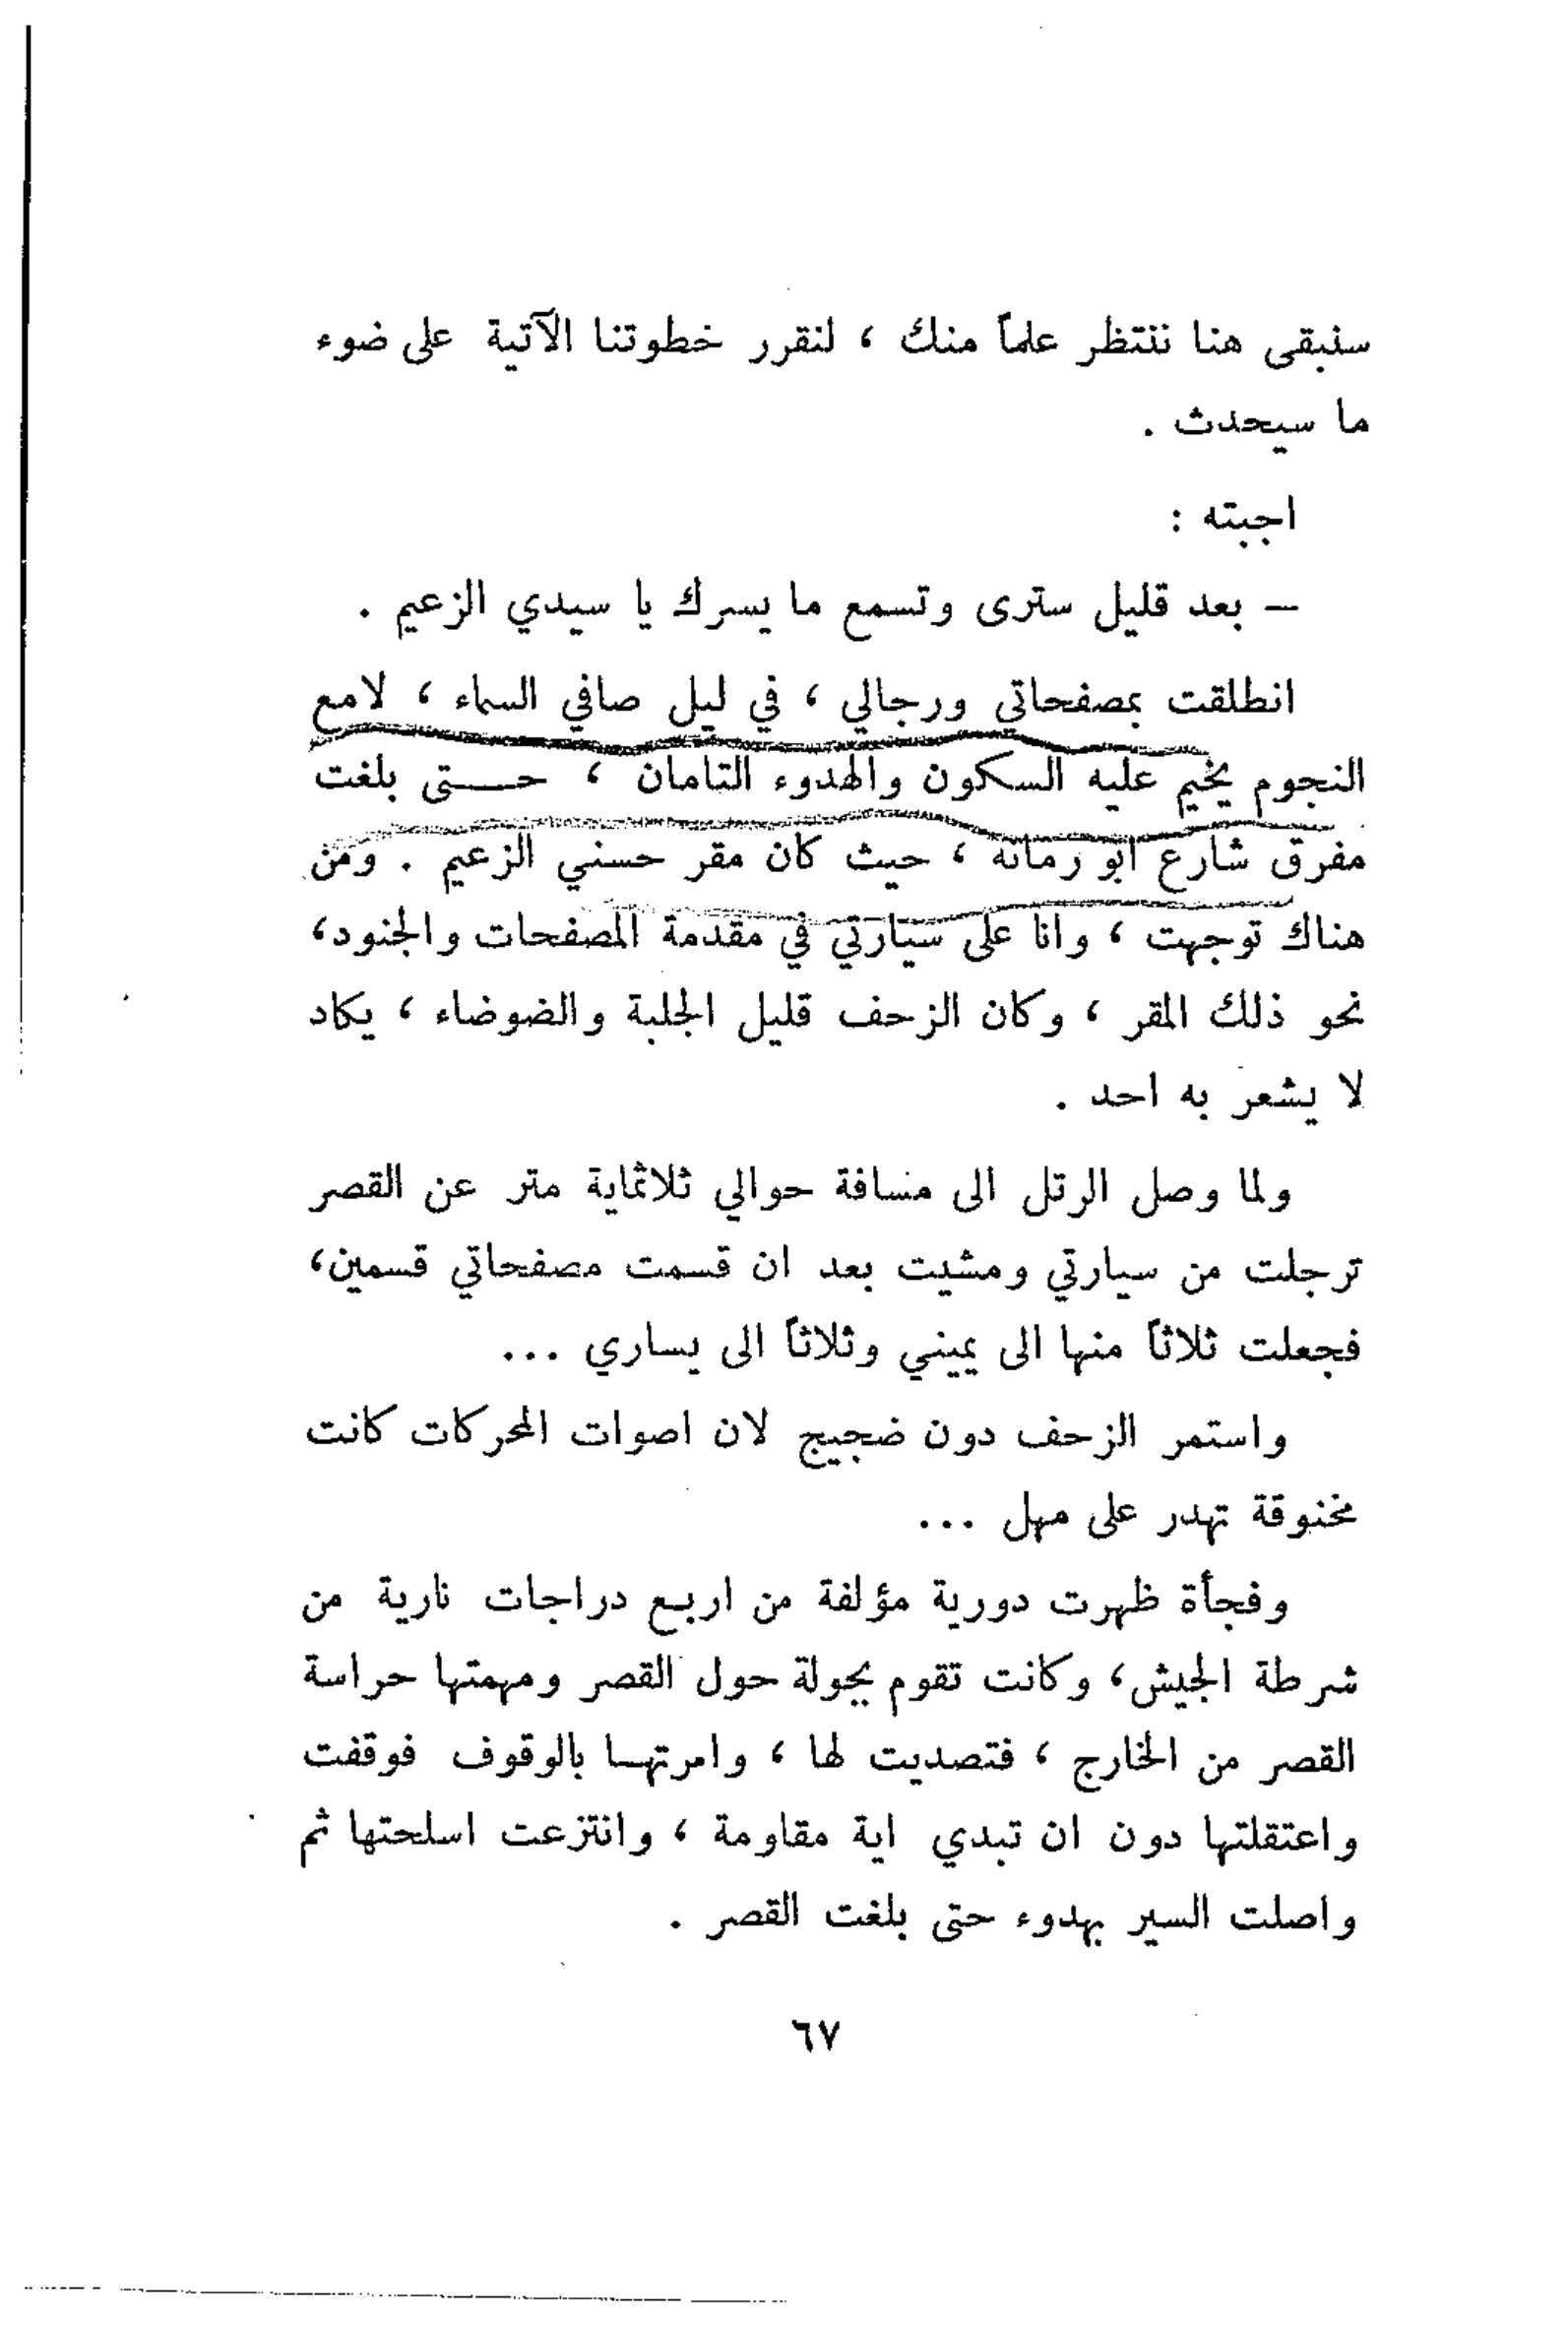 سنبقى هنا ننتظر علماً منك ، لنقرر خطوتنا الآتية على ضوء
ما سيحدث .
اجبته :
— بعد قليل سترى وتسمع ما يسرك يا سيدي الزعيم .
انطلقت بمصفحاتي ورجالي ، في ليل صافي السماء ، لامع
النجوم يخيم عليه السكون والهدوء التامان ، حـــتى بلغت
مفرق شارع ابو رمانه ، حيث كان مقر حسني الزعيم . ومن
هناك توجهت ، وانا على سيارتي في مقدمة المصفحات والجنود،
نحو ذلك المقر ، وكان الزحف قليل الجلبة والضوضاء ، يكاد
لا يشعر به احد .
ولما وصل الرتل الى مسافة حوالي ثلاثماية متر عن القصر
ترجلت من سيارتي ومشيت بعد ان قسمت مصفحاتي قسمين،
فجعلت ثلاثاً منها الى يميني وثلاثاً الى يساري ...
واستمر الزحف دون ضجيج لان اصوات المحركات كانت
مخنوقة تهدر على مهل ...
وفجأة ظهرت دورية مؤلفة من اربـع دراجات نارية من
شرطة الجيش، وكانت تقوم بجولة حول القصر ومهمتها حراسة
القصر من الخارج ، فتصديت لها ، وامرتهـا بالوقوف فوقفت
واعتقلتها دون ان تبدي اية مقاومة ، وانتزعت اسلحتها ثم
واصلت السير بهدوء حتى بلغت القصر .
٦٧